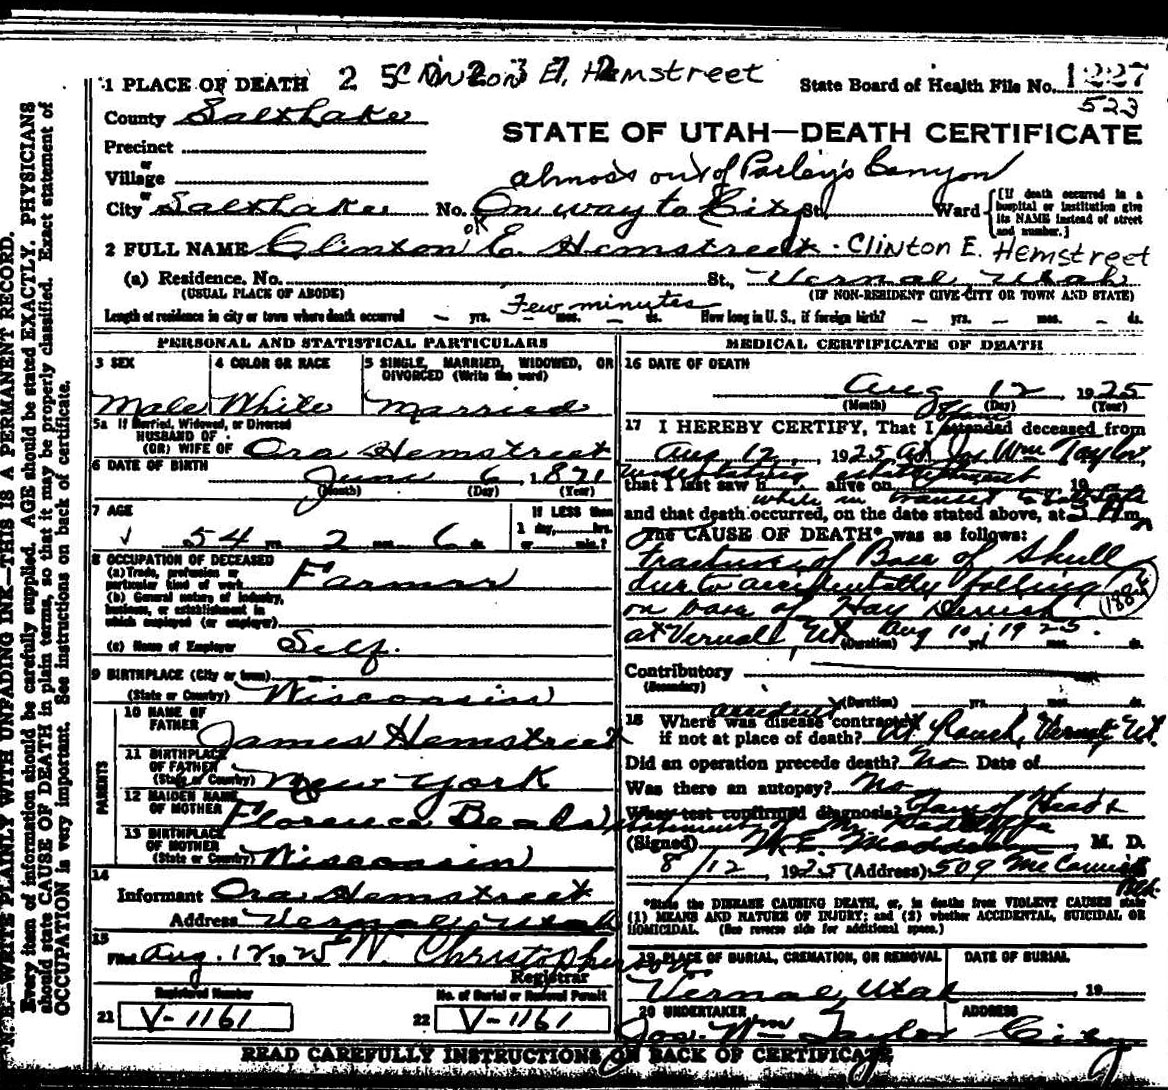 1 PLACE OF DEATH 2 5 2 3 7 2 Clinton E. Hemstreet State Board of Health File No. 1227
523
County Salt Lake
STATE OF UTAH—DEATH CERTIFICATE
Precinct
or
Village almost out of Parley's Canyon
or
City Salt Lake No. On way to City St. Ward [If death occurred in a hospital or institution give its NAME instead of street and number.]
OK
2 FULL NAME Clinton E. Hemstreet. Clinton E. Hemstreet
(a) Residence. No. St., Vernal, Utah
(USUAL PLACE OF ABODE) (IF NON-RESIDENT GIVE CITY OR TOWN AND STATE)
Few minutes
Length of residence in city or town where death occurred – yrs. – mos. – ds. How long in U. S., if foreign birth? – yrs. – mos. – ds.
PERSONAL AND STATISTICAL PARTICULARS
3 SEX 4 COLOR OR RACE 5 SINGLE, MARRIED, WIDOWED, OR DIVORCED (Write the word)
Male White Married
5a If Married, Widowed, or Divorced
HUSBAND OF
(OR) WIFE OF Ora Hemstreet
6 DATE OF BIRTH June 6, 1871
(Month) (Day) (Year)
7 AGE If LESS than
1 day, hrs.
54 yrs. 2 mos. 6 ds. or min.?
8 OCCUPATION OF DECEASED
(a) Trade, profession or
particular kind of work Farmer
(b) General nature of industry,
business, or establishment in
which employed (or employer)
(c) Name of Employer Self.
9 BIRTHPLACE (City or town)
(State or Country) Wisconsin
PARENTS
10 NAME OF
FATHER James Hemstreet
11 BIRTHPLACE
OF FATHER
(State or Country) New York
12 MAIDEN NAME
OF MOTHER Florence Beals
13 BIRTHPLACE
OF MOTHER
(State or Country) Wisconsin
14
Informant Ora Hemstreet
Address Vernal, Utah
15
Filed Aug. 12 1925 W. Christopherson
Registrar
Registered Number No. of Burial or Removal Permit
21 V-1161 22 V-1161
MEDICAL CERTIFICATE OF DEATH
16 DATE OF DEATH
Aug 12 1925
(Month) (Day) (Year)
17 I HEREBY CERTIFY, That I attended deceased from
Aug 12, 1925 at Jos Wm Taylor
undertaking establishment
that I last saw h alive on 19
while in transit to Salt Lake
and that death occurred, on the date stated above, at 5 A m.
The CAUSE OF DEATH* was as follows:
Fracture of Base of Skull
due to accidentally falling
on base of Hay Derrick
at Vernal, Ut Aug 10, 1925.
(Duration) yrs. mos. ds.
Contributory
(Secondary)
(Duration) yrs. mos. ds.
accident
18 Where was disease contracted
if not at place of death? At Ranch, Vernal, Ut.
Did an operation precede death? No Date of
Was there an autopsy? No
What test confirmed diagnosis? Exam of Head &
statement of
(Signed) M. D.
8/12, 1925 (Address) 509 McCornick
Blk.
*State the DISEASE CAUSING DEATH, or, in deaths from VIOLENT CAUSES state
(1) MEANS AND NATURE OF INJURY; and (2) whether ACCIDENTAL, SUICIDAL OR
HOMICIDAL. (See reverse side for additional space.)
19 PLACE OF BURIAL, CREMATION, OR REMOVAL DATE OF BURIAL
Vernal, Utah , 19
20 UNDERTAKER ADDRESS
Jos. Wm Taylor City
READ CAREFULLY INSTRUCTIONS ON BACK OF CERTIFICATE
N. B.—WRITE PLAINLY WITH UNFADING INK—THIS IS A PERMANENT RECORD.
Every item of information should be carefully supplied. AGE should be stated EXACTLY. PHYSICIANS
should state CAUSE OF DEATH in plain terms, so that it may be properly classified. Exact statement of
OCCUPATION is very important. See instructions on back of certificate.